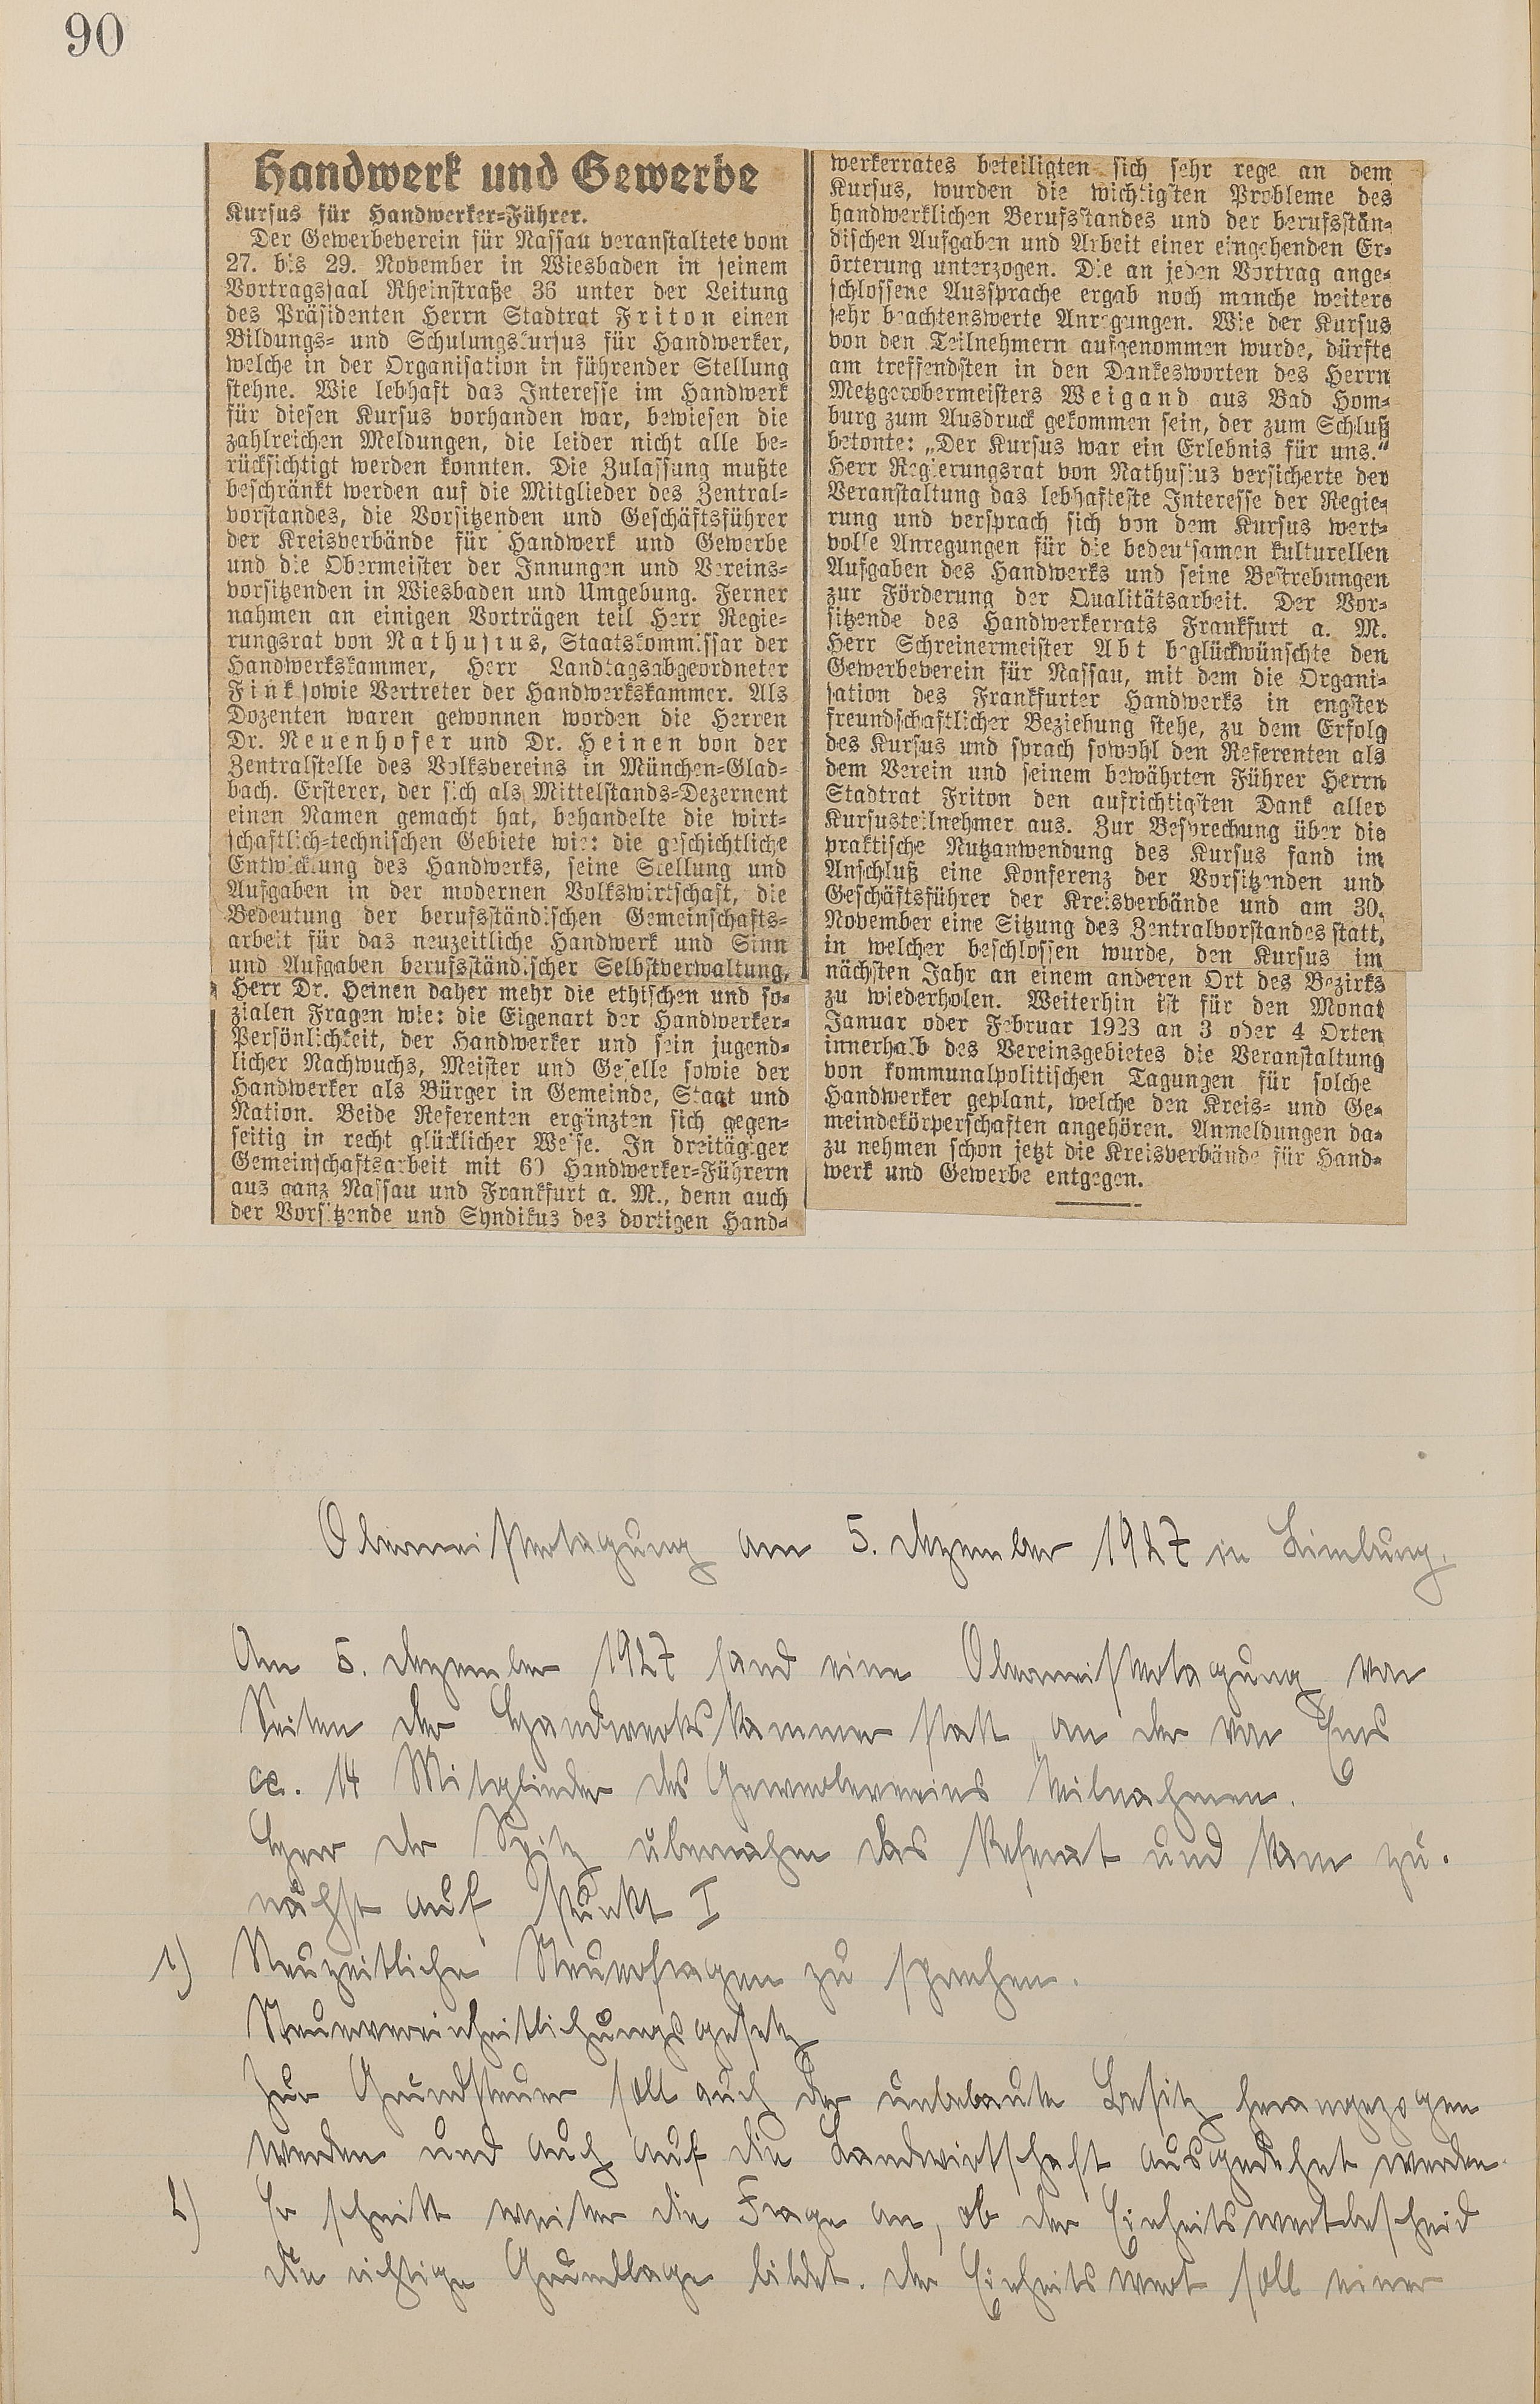 90
Handwerk und Gewerbe
Kursus für Handwerker-Führer.
Der Gewerbeverein für Nassau veranstaltete vom
27. bis 29. November in Wiesbaden in seinem
Vortragssaal Rheinstraße 36 unter der Leitung
des Präsidenten Herrn Stadtrat Friton einen
Bildungs- und Schulungskursus für Handwerker,
welche in der Organisation in führender Stellung
stehne. Wie lebhaft das Interesse im Handwerk
für diesen Kursus vorhanden war, bewiesen die
zahlreichen Meldungen, die leider nicht alle be-
rücksichtigt werden konnten. Die Zulassung mußte
beschränkt werden auf die Mitglieder des Zentral-
vorstandes, die Vorsitzenden und Geschäftsführer
der Kreisverbände für Handwerk und Gewerbe
und die Obermeister der Innungen und Vereins-
vorsitzenden in Wiesbaden und Umgebung. Ferner
nahmen an einigen Vorträgen teil Herr Regie-
rungsrat von Nathusius, Staatskommissar der
Handwerkskammer, Herr Landtagsabgeordneter
Fink sowie Vertreter der Handwerkskammer. Als
Dozenten waren gewonnen worden die Herren
Dr. Neuenhofer und Dr. Heinen von der
Zentralstelle des Volksvereins in München-Glad-
bach. Ersterer, der sich als Mittelstands-Dezernent
einen Namen gemacht hat, behandelte die wirt-
schaftlich-technischen Gebiete wie: die geschichtliche
Entwicklung des Handwerks, seine Stellung und
Aufgaben in der modernen Volkswirtschaft, die
Bedeutung der berufsständischen Gemeinschafts-
arbeit für das neuzeitliche Handwerk und Sinn
und Aufgaben berufsständischer Selbstverwaltung,
Herr Dr. Heinen daher mehr die ethischen und so-
zialen Fragen wie: die Eigenart der Handwerker-
Persönlichkeit, der Handwerker und sein jugend-
licher Nachwuchs, Meister und Geselle sowie der
Handwerker als Bürger in Gemeinde, Staat und
Nation. Beide Referenten ergänzten sich gegen-
seitig in recht glücklicher Weise. In dreitägiger
Gemeinschaftsarbeit mit 60 Handwerker-Führern
aus ganz Nassau und Frankfurt a. M., denn auch
der Vorsitzende und Syndikus des dortigen Hand-
werkerrates beteiligten sich sehr rege an dem
Kursus, wurden die wichtigsten Probleme des
handwerklichen Berufsstandes und der berufsstän-
dischen Aufgaben und Arbeit einer eingehenden Er-
örterung unterzogen. Die an jeden Vortrag ange-
schlossene Aussprache ergab noch manche weitere
sehr beachtenswerte Anregungen. Wie der Kursus
von den Teilnehmern aufgenommen wurde, dürfte
am treffendsten in den Dankesworten des Herrn
Metzgerobermeisters Weigand aus Bad Hom-
burg zum Ausdruck gekommen sein, der zum Schluß
betonte: „Der Kursus war ein Erlebnis für uns."
Herr Regierungsrat von Nathusius versicherte der
Veranstaltung das lebhafteste Interesse der Regie-
rung und versprach sich von dem Kursus wert-
volle Anregungen für die bedeutsamen kulturellen
Aufgaben des Handwerks und seine Bestrebungen
zur Förderung der Qualitätsarbeit. Der Vor-
sitzende des Handwerkerrats Frankfurt a. M.
Herr Schreinermeister Abt beglückwünschte den
Gewerbeverein für Nassau, mit dem die Organi-
sation des Frankfurter Handwerks in engster
freundschaftlicher Beziehung stehe, zu dem Erfolg
des Kursus und sprach sowohl den Referenten als
dem Verein und seinem bewährten Führer Herrn
Stadtrat Friton den aufrichtigsten Dank aller
Kursusteilnehmer aus. Zur Besprechung über die
praktische Nutzanwendung des Kursus fand im
Anschluß eine Konferenz der Vorsitzenden und
Geschäftsführer der Kreisverbände und am 30.
November eine Sitzung des Zentralvorstandes statt,
in welcher beschlossen wurde, den Kursus im
nächsten Jahr an einem anderen Ort des Bezirks
zu wiederholen. Weiterhin ist für den Monat
Januar oder Februar 1923 an 3 oder 4 Orten
innerhalb des Vereinsgebietes die Veranstaltung
von kommunalpolitischen Tagungen für solche
Handwerker geplant, welche den Kreis- und Ge-
meindekörperschaften angehören. Anmeldungen da-
zu nehmen schon jetzt die Kreisverbände für Hand-
werk und Gewerbe entgegen.
Obermeistertagung am 5. Dezember 1927 in Limburg.
Am 5. Dezember 1927 fand eine Obermeistertagung von
Seiten der Handwerkskammer statt, an der von Ems
ca. 14 Mitglieder des Gewerbevereins teilnahmen.
Herr Dr Spitz übernahm das Referat und kam zu-
nächst auf Punkt I
1) Neuzeitliche Steuerfragen zu sprechen.
Steuervereinheitlichungsgesetz
Zur Grundsteuer soll auch der unbebaute Besitz herangezogen
werden und auch auf die Landwirtschaft ausgedehnt werden.
2) Er schnitt weiter die Frage an, ob der Einheitswertbescheid
die richtige Grundlage bildet. Der Einheitswert soll einer